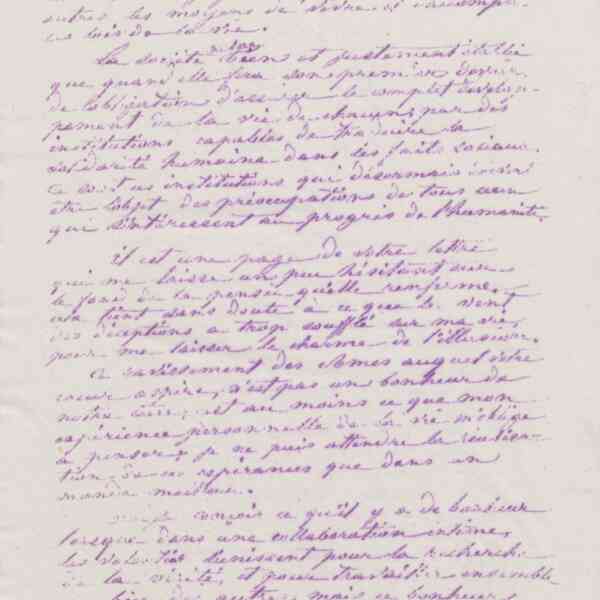 autres les moyens de vivre et d'accomplir
les lois de la vie.
La société ne sera bien et justement établie
que quand elle fera son premier devoir
de l'obligation d'assurer le complet dévelop-
pement de la vie de chacun, par des
institutions capables de traduire la
solidarité humaine dans les faits sociaux.
Ce sont ces institutions qui désormais doivent
être l'objet des préoccupations de tous ceux
qui s'intéressent au progrès de l'humanité.
Il est une page de votre lettre
qui me laisse un peu hésitant sur
le fond de la pensée qu'elle renferme,
cela tient sans doute à ce que le vent
des déceptions a trop soufflé sur ma vie,
pour me laisser le charme de l'illusion.
Ce ravissement des âmes auquel votre
cœur aspire, n'est pas un bonheur de
notre ; c'est au moins ce que mon
expérience personnelle de la vie m'oblige
à penser ; je ne puis attendre la réalisa-
tion de ces espérances que dans un
monde meilleur.
conçois ce qu'il y a de bonheur
lorsque dans une collaboration intime,
les volontés s'unissent pour la recherche
de la vérité, et pour travailler ensemble
bien des autres, mais ce bonheur